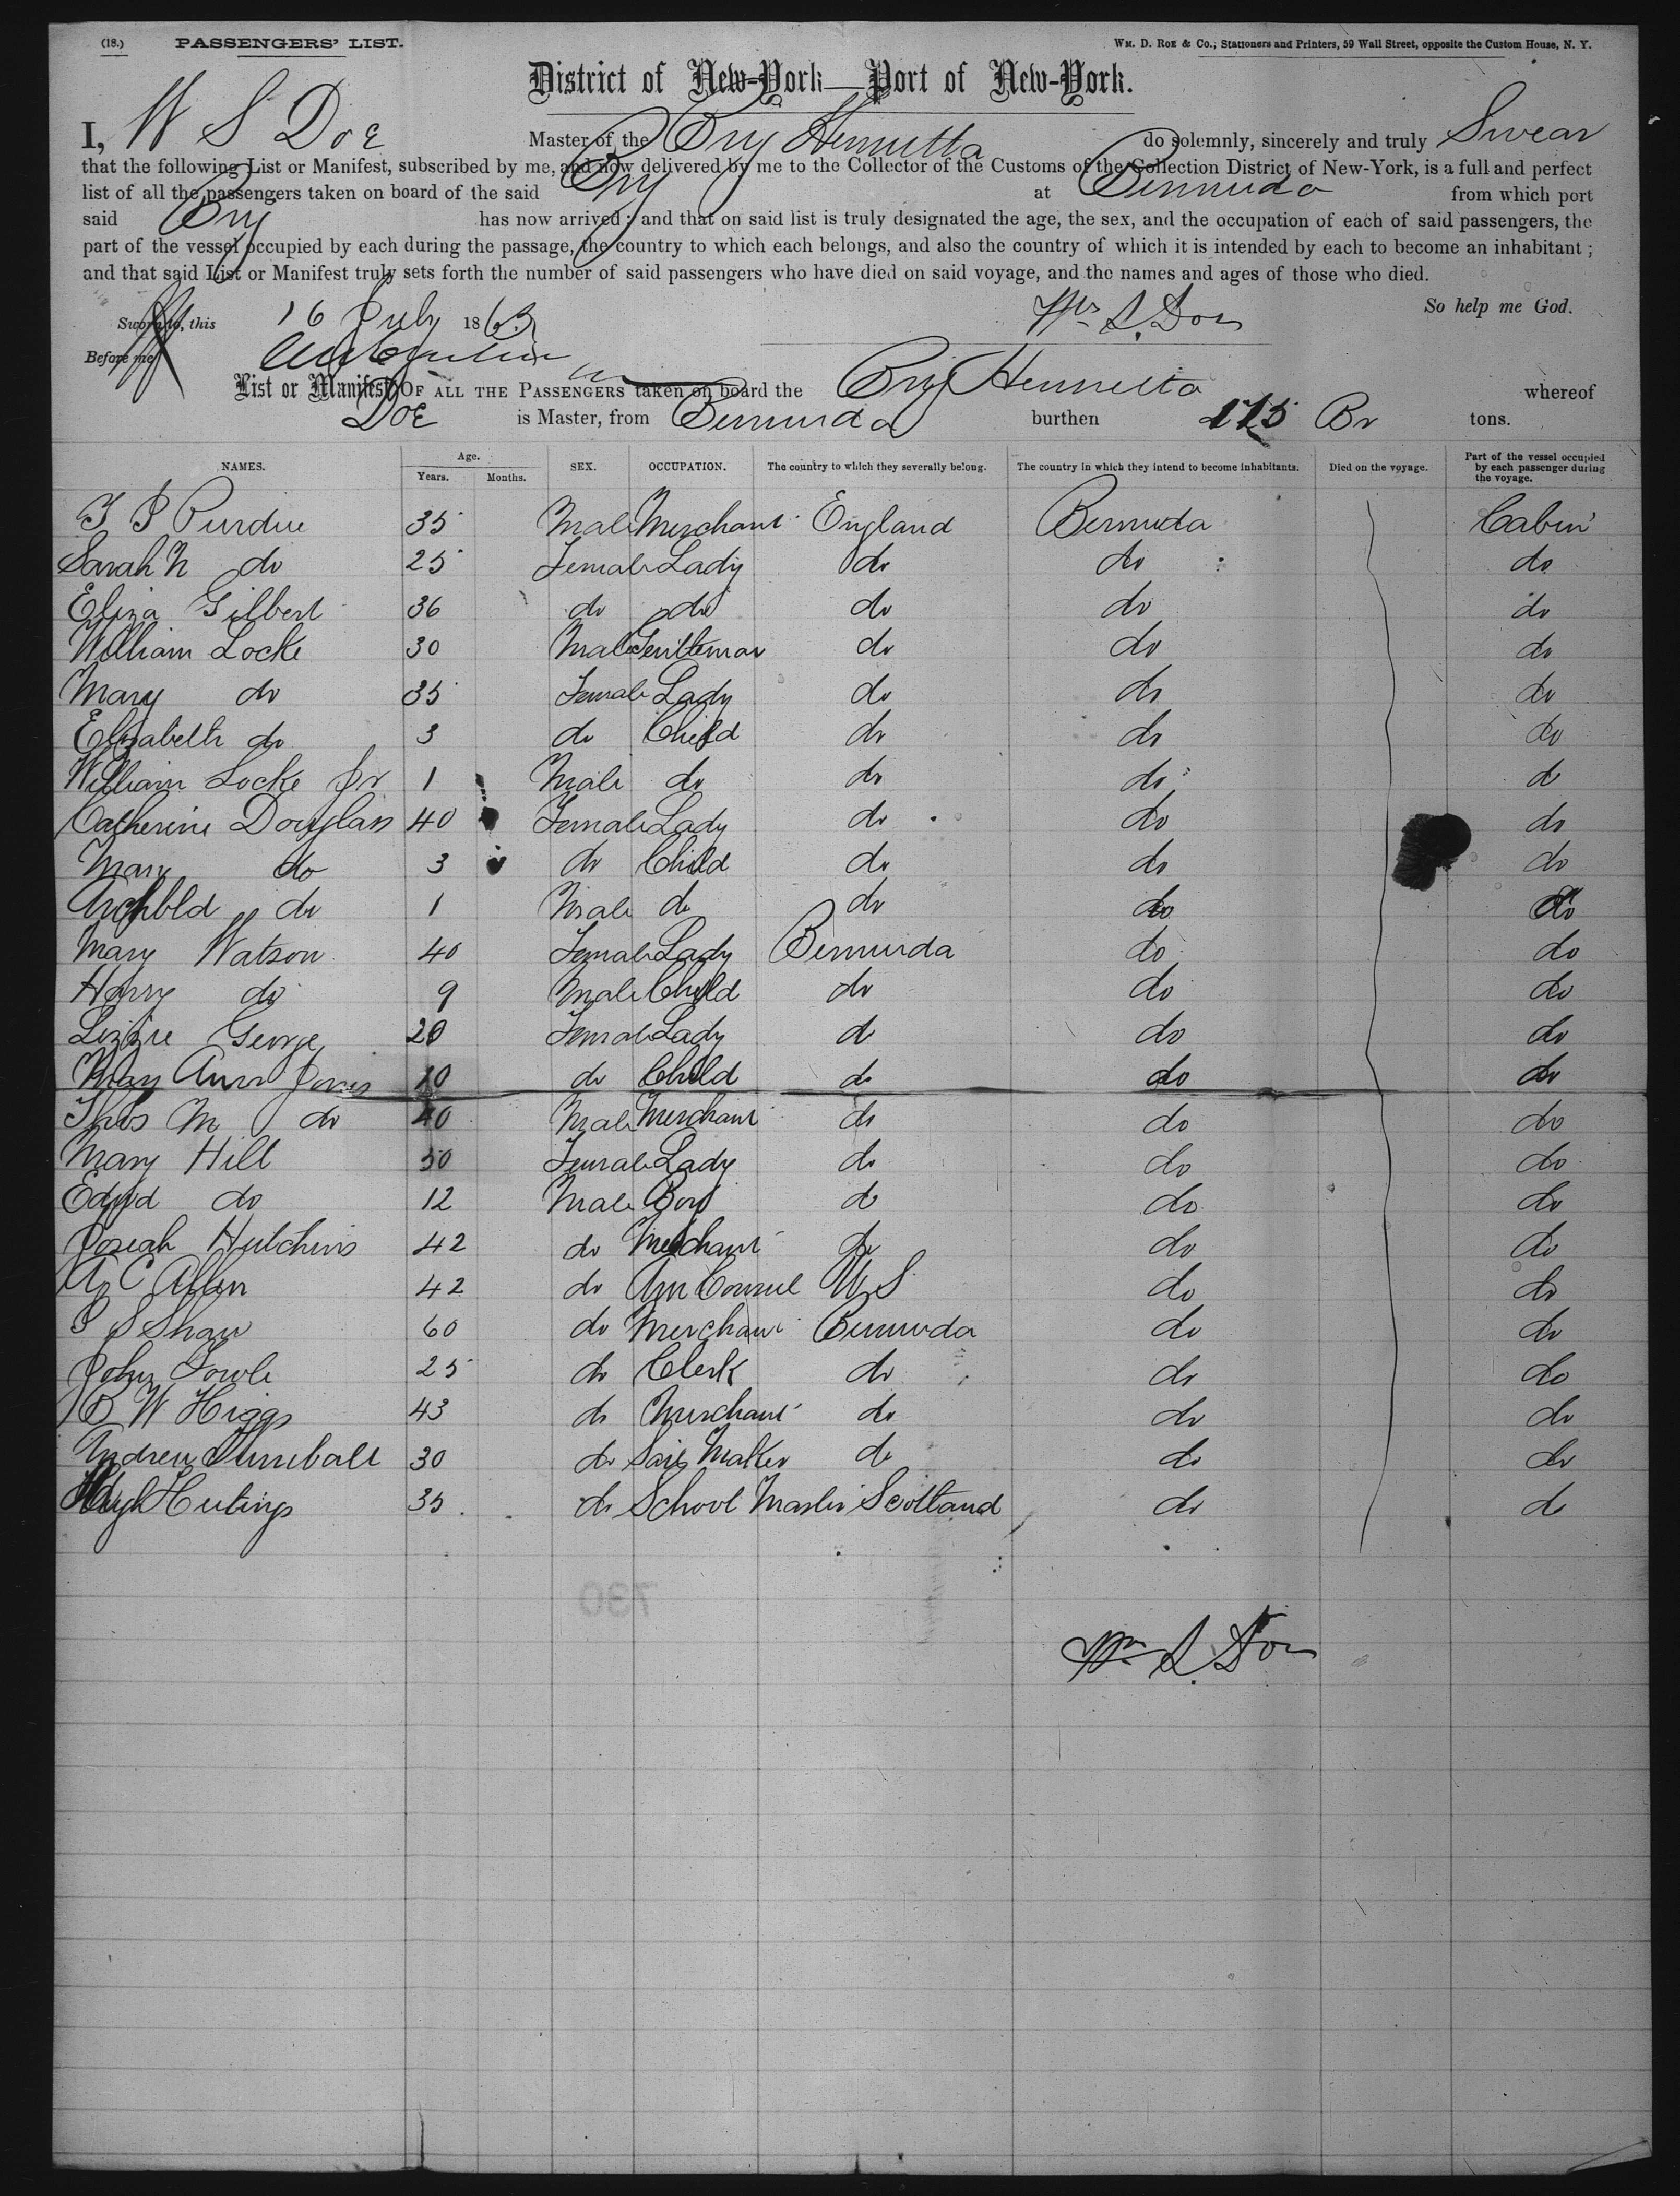 (18.) PASSENGERS' LIST. Wm. D. Roe & Co., Stationers and Printers, 59 Wall Street, opposite the Custom House, N. Y.
District of New-York—Port of New-York.
I, W S Doe Master of the Brig Henrietta do solemnly, sincerely and truly Swear
that the following List or Manifest, subscribed by me, and now delivered by me to the Collector of the Customs of the Collection District of New-York, is a full and perfect
list of all the passengers taken on board of the said Brig at Bermuda from which port
said Brig has now arrived; and that on said list is truly designated the age, the sex, and the occupation of each of said passengers, the
part of the vessel occupied by each during the passage, the country to which each belongs, and also the country of which it is intended by each to become an inhabitant;
and that said List or Manifest truly sets forth the number of said passengers who have died on said voyage, and the names and ages of those who died.
So help me God.
Sworn to, this 16 July 1863 Wm S. Doe
Before me,
List or Manifest OF ALL THE PASSENGERS taken on board the Brig Henrietta whereof
Doe is Master, from Bermuda burthen 175 Br tons.
NAMES. Age. Years. Months. SEX. OCCUPATION. The country to which they severally belong. The country in which they intend to become inhabitants. Died on the voyage. Part of the vessel occupied by each passenger during the voyage.
Purdue 35 Male Merchant England Bermuda Cabin
Sarah N do 25 Female Lady do do do
Eliza Gilbert 36 do do do do do
William Locke 30 Male Gentleman do do do
Mary do 35 Female Lady do do do
Elizabeth do 3 do Child do do do
William Locke Jr 1 Male do do do do
Catherine Douglass 40 Female Lady do do do
Mary do 3 do Child do do do
Archbld do 1 Male do do do do
Mary Watson 40 Female Lady Bermuda do do
Harry do 9 Male Child do do do
Lizzie George 20 Female Lady do do do
Mary Ann Jones 10 do Child do do do
Thos M do 40 Male Merchant do do do
Mary Hill 50 Female Lady do do do
Edwd do 12 Male Boy do do do
Josiah Hutchins 42 do Merchant do do do
Allen 42 do Am Consul U S do do
S Shaw 60 do Merchant Bermuda do do
John Fowle 25 do Clerk do do do
B W Higgs 43 do Merchant do do do
Andrew Turnball 30 do Sail Maker do do do
Hugh 35 do School Master Scotland do do
730
Wm S. Doe